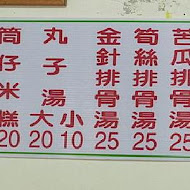 苦瓜排骨湯 25
筍絲排骨湯 25
金針排骨湯 25
丸子湯 大20 小10
筒仔米糕 20